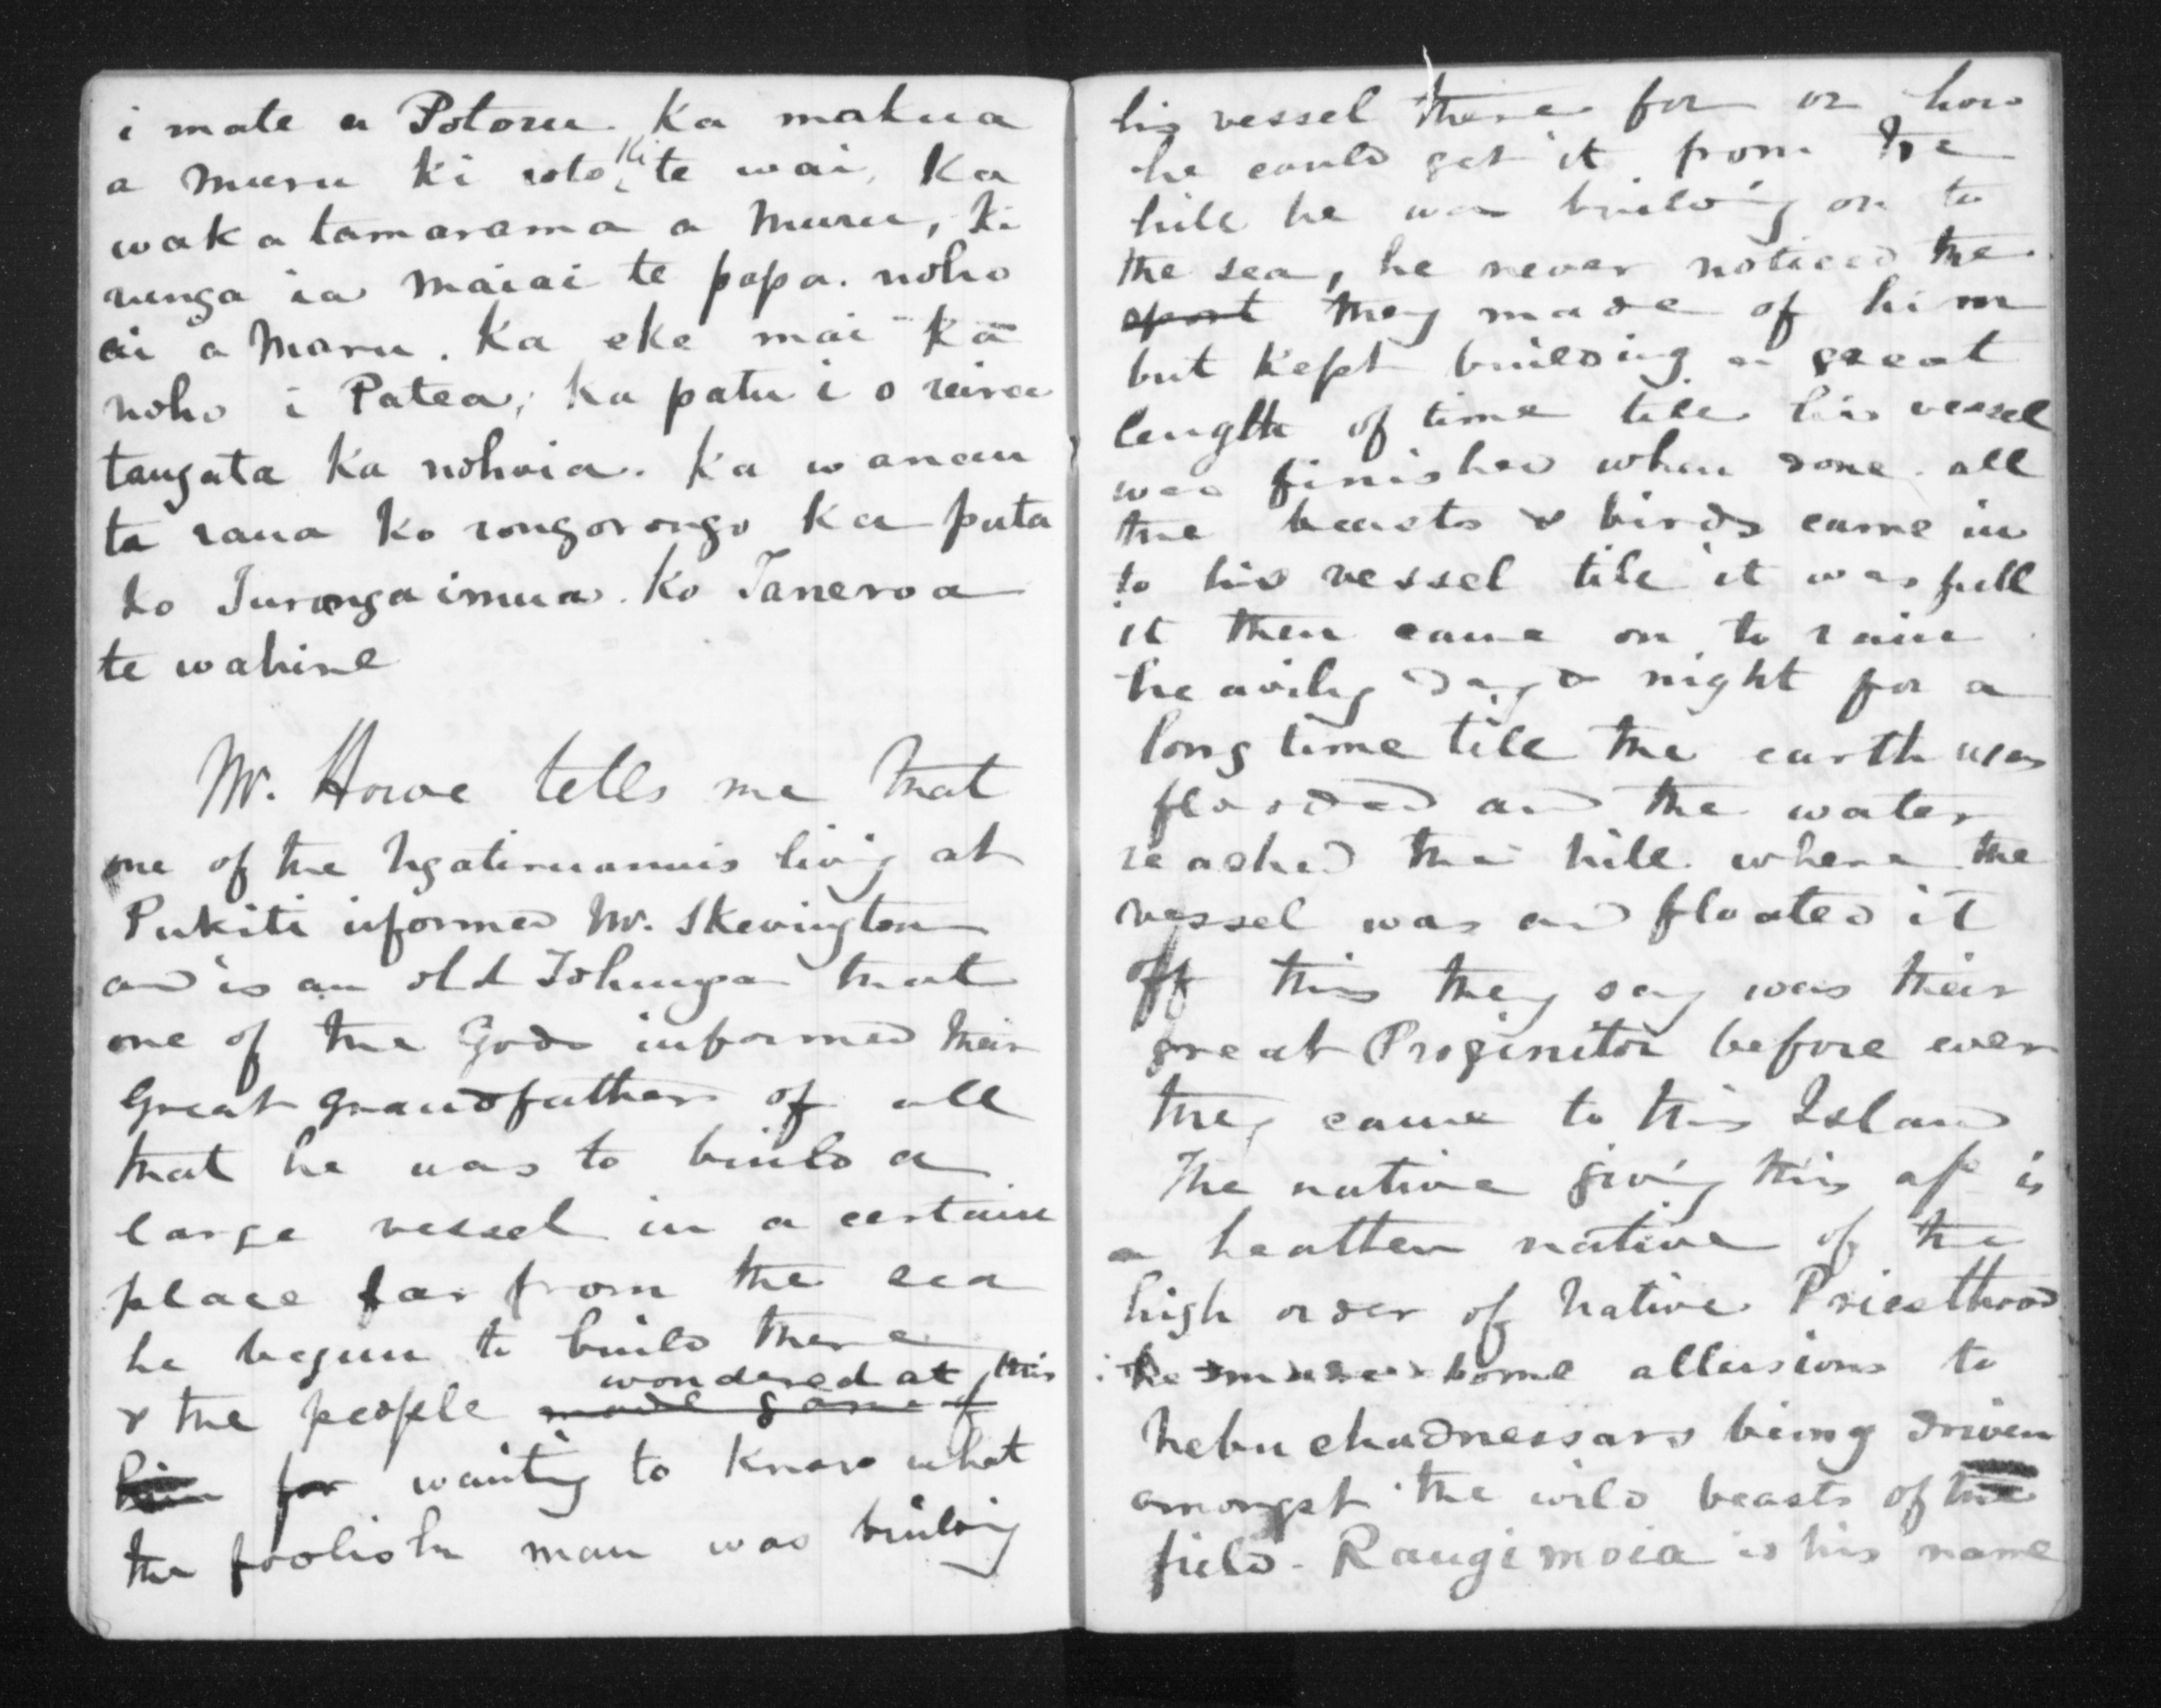 i mate a Potoru. Ka makua
a muru ki roto ki te wai, Ka
waka tamarama a Muru, ki
runga ia maiai te papa. noho
ai a Maru. Ka eke mai Ka
noho i Patea, ka patu i o reira
tangata Ka nohoia. Ka wanau
ta raua Ko rongorongo Ka puta
ko Turongaimua. Ko Taneroa
te wahine
Mr. Howe tells me that
one of the Ngatiruanuis living at
Pukiti informed Mr. Skevington
and is an old Tohunga that
one of the Gods informed their
Great grandfather of all
that he was to build a
large vessel in a certain
place far from the sea
he begun to build there
wondered at this
& the people made game of
him for wanting to know what
the foolish man was building
his vessel there for or how
he could get it from the
hill he was building on to
the sea, he never noticed the
sport they made of him
but kept building a great
length of time till his vessel
was finished when done all
the beasts & birds came in
to his vessel till it was full
it then came on to rain
heavily day & night for a
long time till the earth was
flooded and the water
reached the hill where the
vessel was and floated it
off this they say was their
great Proginitor before ever
they came to this Island
The native giving this a/c is
a heathen native of the
high order of Native Priesthood
he some allusions to
Nebuchadnessars being driven
amongst the wild beasts of the
field - Rangimoia is his name